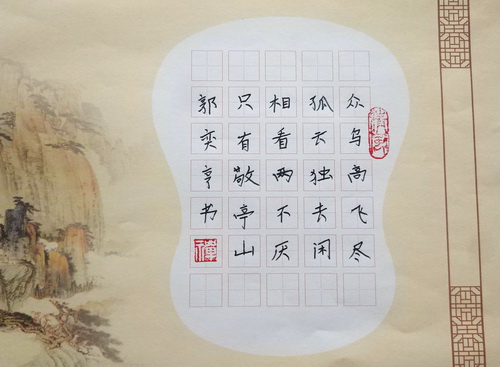 众鸟高飞尽
孤云独去闲
相看两不厌
只有敬亭山
郭奕亨书